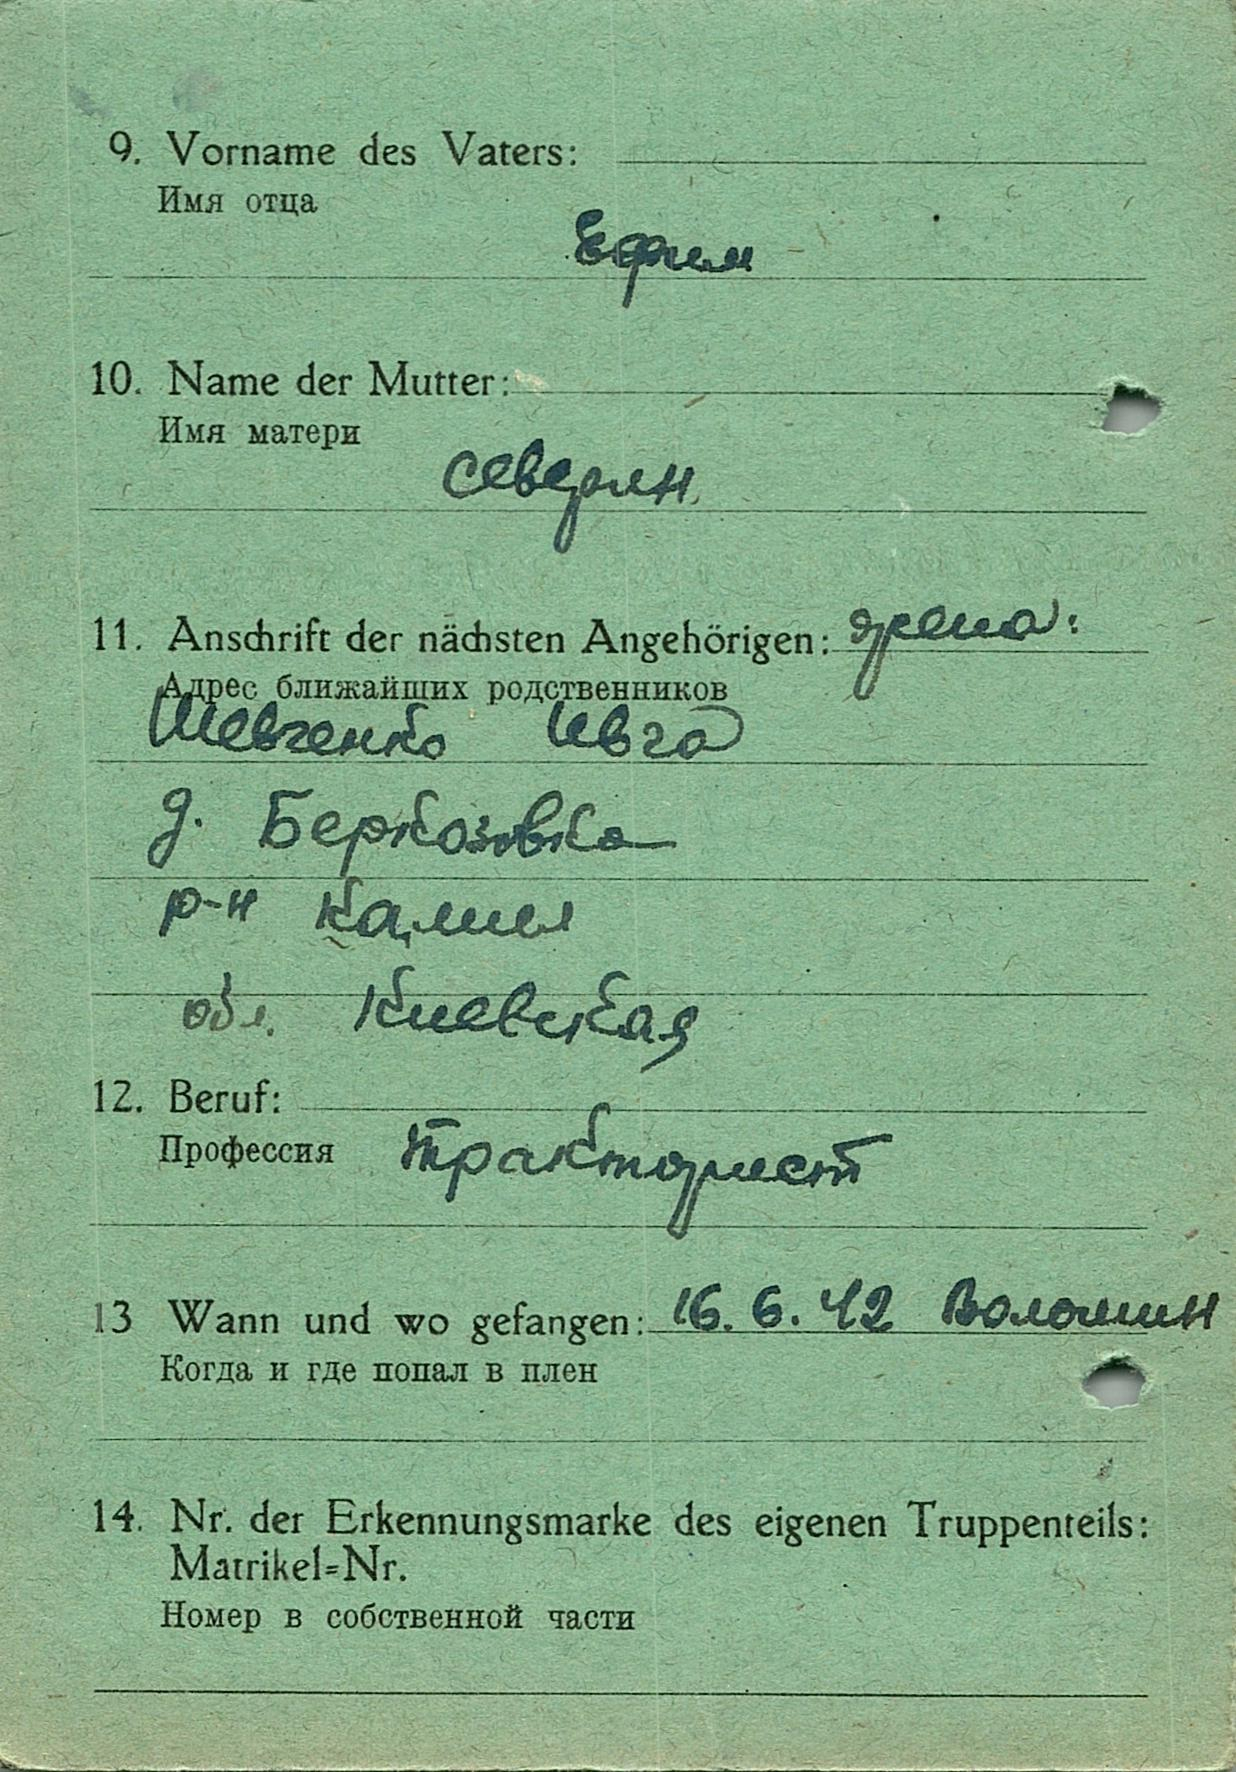 9. Vorname des Vaters:
Имя отца
Ефим
10. Name der Mutter:
Имя матери
Северин
11. Anschrift der nächsten Angehörigen: жена:
Адрес ближайших родственников
Шевченко Ивга
д. Беркозовка
р-н
обл. Киевская
12. Beruf:
Профессия
Тракторист
13 Wann und wo gefangen: 16.6.42 Воломин
Когда и где попал в плен
14. Nr. der Erkennungsmarke des eigenen Truppenteils:
Matrikel=Nr.
Номер в собственной части